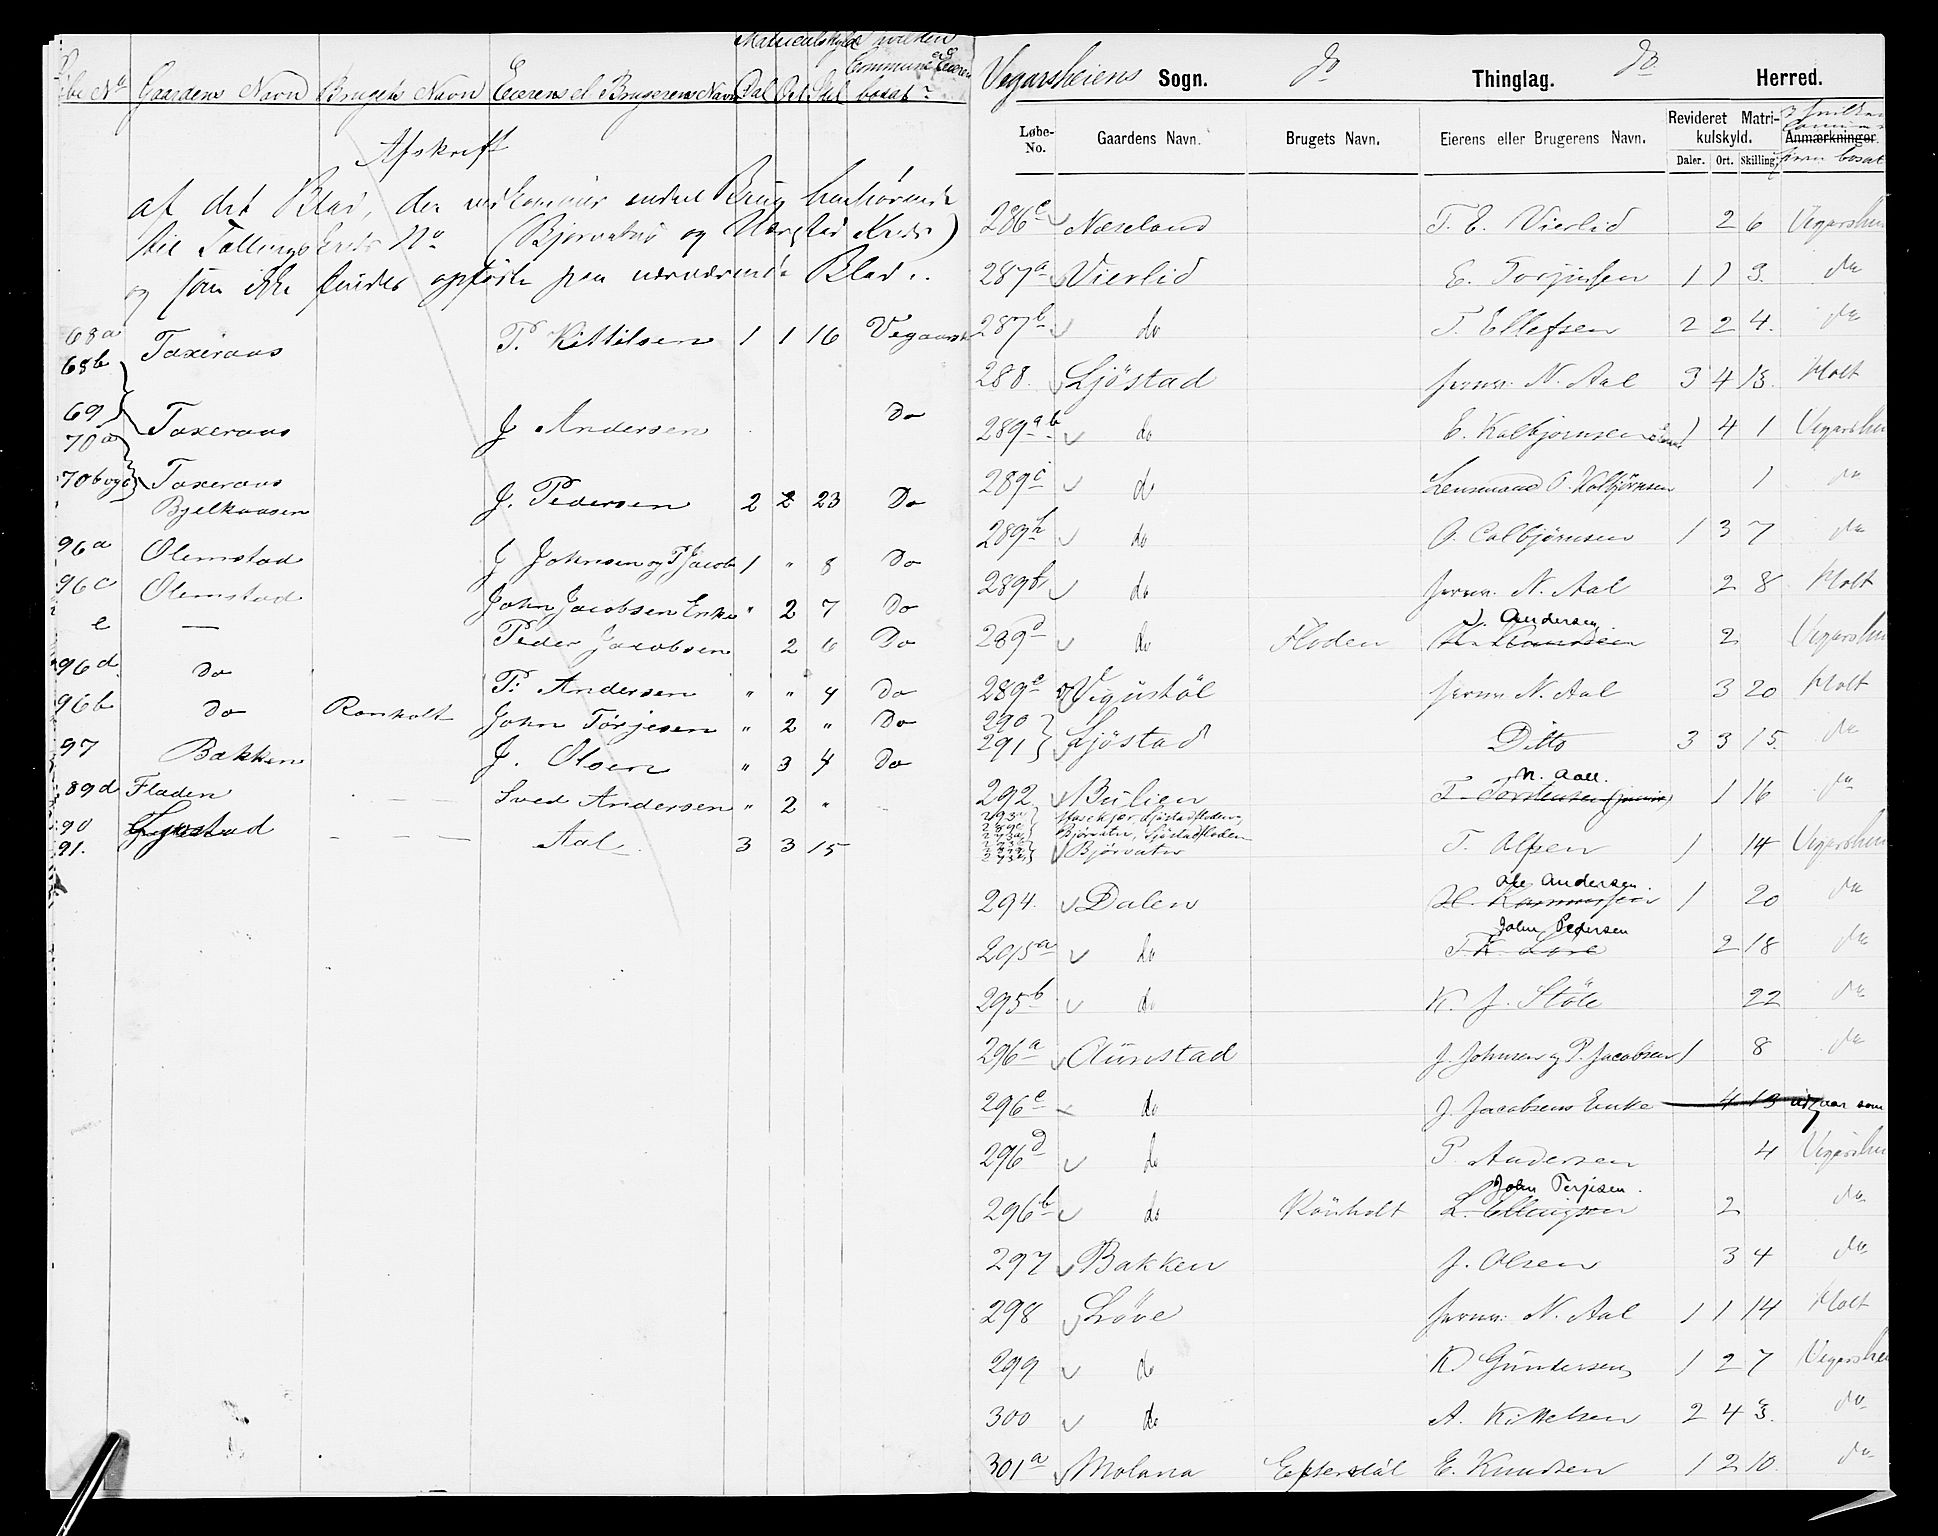 Løbe No Gaardens Navn Brugets Navn Eierens el Brugerens Navn Dal Ort Skil bosat
Afskrift
af det Blad, der vedkommer endeel Brug henhørende
til Tællings Kreds No (Bjorvatns og Ufregstad Kreds)
og som ikke findes opførte paa nærværende Blad.
68a
68b Taxeraas P. Kittilsen 1 1 16 Vegaarsh
69
70a Taxeraas J Andersen Do
70b og c Taxeraas
Bjelkaasen J. Pedersen 2 2 23 Do
96a Olimstad J Johnsen og P Jacob 1 " 8 Do
96c Olimstad John Jacobsen Enke " 2 7 Do
e — Peder Jacobsen 2 6 Do
96d Do P. Andersen " " 4 Do
96b Do Ronholt John Törjesen " 2 " Do
97 Bakken J. Olsen " 3 4 Do
89d Fladen Sved Andersen " 2 "
90
91. Ljøstad Aal 3 3 15
Vegarsheiens Sogn. do Thinglag. do Herred.
Løbe-No. Gaardens Navn. Brugets Navn. Eierens eller Brugerens Navn. Revideret Matrikulskyld. Anmærkninger.
Daler. Ort. Skilling. bosat
286c Næseland T. E. Vierlid 2 6 Vegarshei
287a Vierlid E. Torjusen 1 1 3. do
287b do T. Ellefsen 2 2 4. do
288. Ljöstad N. Aal 3 4 13. Holt
289a b do E. Kolbjornsen 1 4 1 Vegarshei
289c do Lensmand O. Kolbjörnsen 1 do
289h do O. Colbjørnsen 1 3 7 do
289f do N. Aal 2 8 Holt
J. Andersen
289d do Floden 2 Vegarshei
289e Vigustöl N. Aal 3 20 Holt
290
291 Ljöstad Ditto 3 3 15. do
N. Aall.
292 Bulien T. Torstensen (junior) 1 16 do
Bjørvatn, Ljöstadfloden
Bjørvatn T. Olsen 1 14 Vegarshei
Ole Andersen.
294. Dalen H. Rasmussen 1 20 do
John Pedersen
295a do T. K. Løve 2 18 do
295b do K. J. Stöle 22 do
296a Olimstad J. Johnsen og P. Jacobsen 1 8 do
296c do J. Jacobsens Enke 4 13 udgaar som
296d do P. Andersen 4 Vegarshei
John Terjesen.
296b do Rönholt L. Ellingsen 2 do
297 Bakken J. Olsen 3 4 do
298 Löve N. Aal 1 1 14 Holt
299 do K. Gundersen 1 2 7 Vegarshei
300 do A. Kittelsen 2 4 3. do
301a Molana Epterstöl E. Knudsen 1 2 10. do